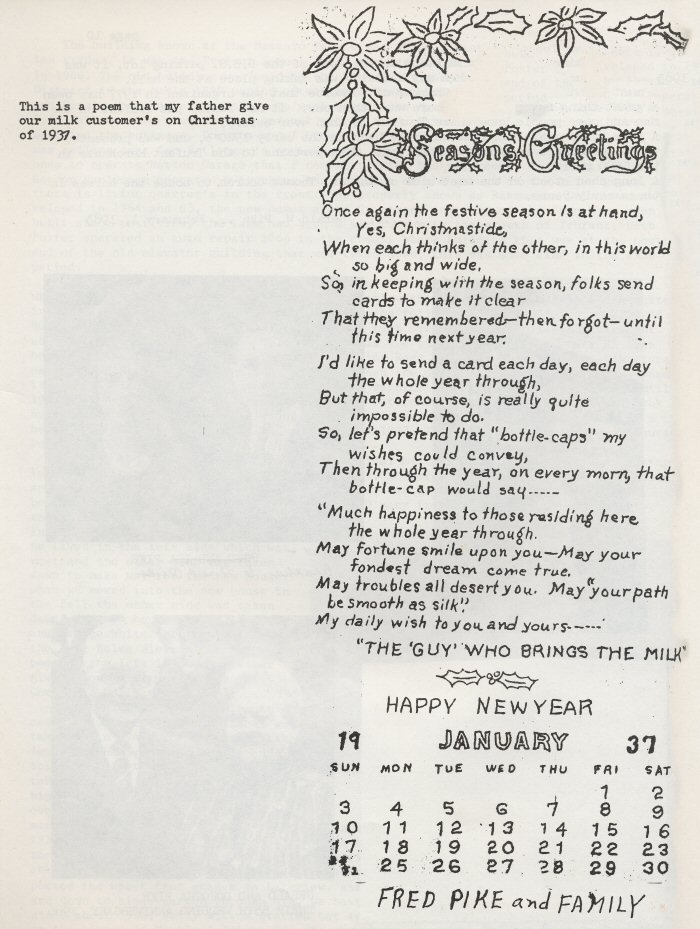 This is a poem that my father give
our milk customer's on Christmas
of 1937.
Seasons Greetings
Once again the festive season is at hand,
Yes, Christmastide,
When each thinks of the other, in this world
so big and wide,
So, in keeping with the season, folks send
cards to make it clear
That they remembered—then forgot—until
this time next year.
I'd like to send a card each day, each day
the whole year through,
But that, of course, is really quite
impossible to do.
So, let's pretend that "bottle-caps" my
wishes could convey,
Then through the year, on every morn, that
bottle-cap would say-----
"Much happiness to those residing here
the whole year through.
May fortune smile upon you—May your
fondest dream come true.
May troubles all desert you. May "your path
be smooth as silk".
My daily wish to you and yours-----
"THE 'GUY' WHO BRINGS THE MILK"
HAPPY NEW YEAR
19 JANUARY 37
SUN MON TUE WED THU FRI SAT
1 2
3 4 5 6 7 8 9
10 11 12 13 14 15 16
17 18 19 20 21 22 23
31 25 26 27 28 29 30
FRED PIKE and FAMILY